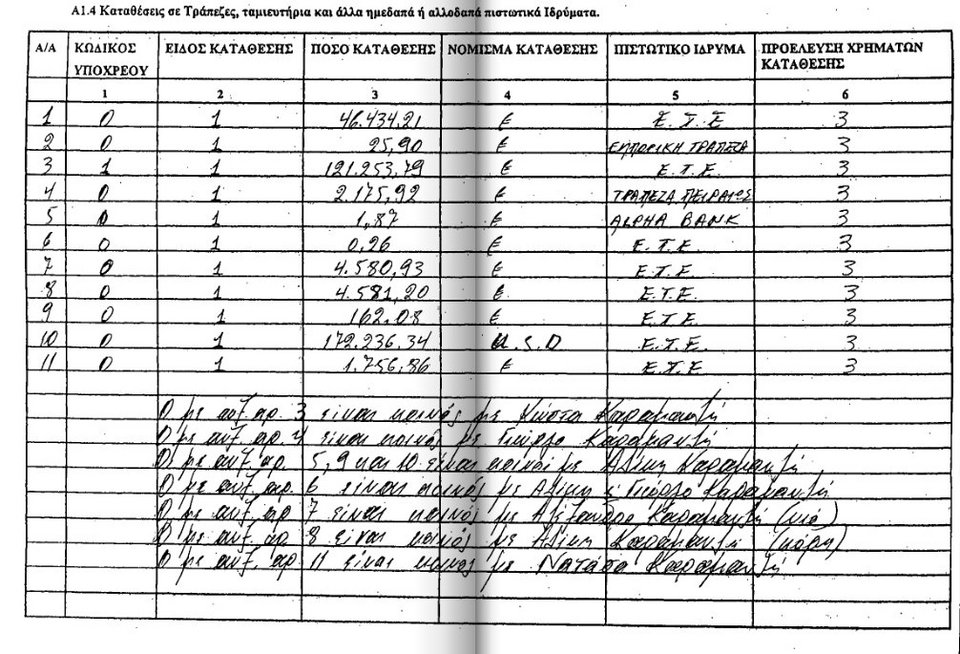 Α1.4 Καταθέσεις σε Τράπεζες, ταμιευτήρια και άλλα ημεδαπά ή αλλοδαπά πιστωτικά Ιδρύματα.
Α/Α ΚΩΔΙΚΟΣ ΥΠΟΧΡΕΟΥ ΕΙΔΟΣ ΚΑΤΑΘΕΣΗΣ ΠΟΣΟ ΚΑΤΑΘΕΣΗΣ ΝΟΜΙΣΜΑ ΚΑΤΑΘΕΣΗΣ ΠΙΣΤΩΤΙΚΟ ΙΔΡΥΜΑ ΠΡΟΕΛΕΥΣΗ ΧΡΗΜΑΤΩΝ ΚΑΤΑΘΕΣΗΣ
1 2 3 4 5 6
1 0 1 46.434,21 € Ε.Τ.Ε 3
2 0 1 25,90 € ΕΜΠΟΡΙΚΗ ΤΡΑΠΕΖΑ 3
3 1 1 121.253,79 € Ε.Τ.Ε. 3
4 0 1 2.175,92 € ΤΡΑΠΕΖΑ ΠΕΙΡΑΙΩΣ 3
5 0 1 1,87 € ALPHA BANK 3
6 0 1 0,26 € Ε.Τ.Ε. 3
7 0 1 4.580,93 € Ε.Τ.Ε. 3
8 0 1 4.581,20 € Ε.Τ.Ε. 3
9 0 1 162,08 € Ε.Τ.Ε. 3
10 0 1 172.236,34 U.S.D Ε.Τ.Ε. 3
11 0 1 1.756,86 € Ε.Τ.Ε. 3
Ο με αυξ. αρ. 3 είναι κοινός με Κώστα Καραμανλή
Ο με αυξ. αρ. 4 είναι κοινός με Γιώργο Καραμανλή
Ο με αυξ. αρ. 5, 9 και 10 είναι κοινοί με Αλίκη Καραμανλή
Ο με αυξ. αρ. 6 είναι κοινός με Αλίκη & Γιώργο Καραμανλή
Ο με αυξ. αρ. 7 είναι κοινός με Αλέξανδρο Καραμανλή (υιό)
Ο με αυξ. αρ. 8 είναι κοινός με Αλίκη Καραμανλή (κόρη)
Ο με αυξ. αρ. 11 είναι κοινός με Νατάσα Καραμανλή